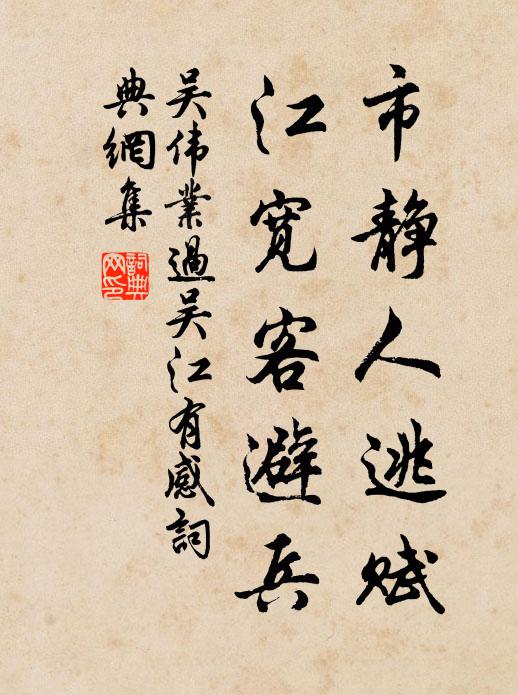 市静人逃赋
江宽客避兵
吴伟業過吴江有感詞
典網集
詞典
网印